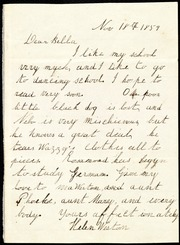 Nov 18th 1859
Dear Hilda
I like my school
very much, and I like to go
to dancing school. I hope to
read very soon. Our poor
little black dog is lost, and
Nebo is very mischievous but
he knows a great deal, he
tears Wazzy's clothes all to
pieces Rosamond has begun
to study German Give my
love to Ma Weston, and aunt
Phoebe, aunt Mary, and every
body. Yours affectionately
Helen Weston